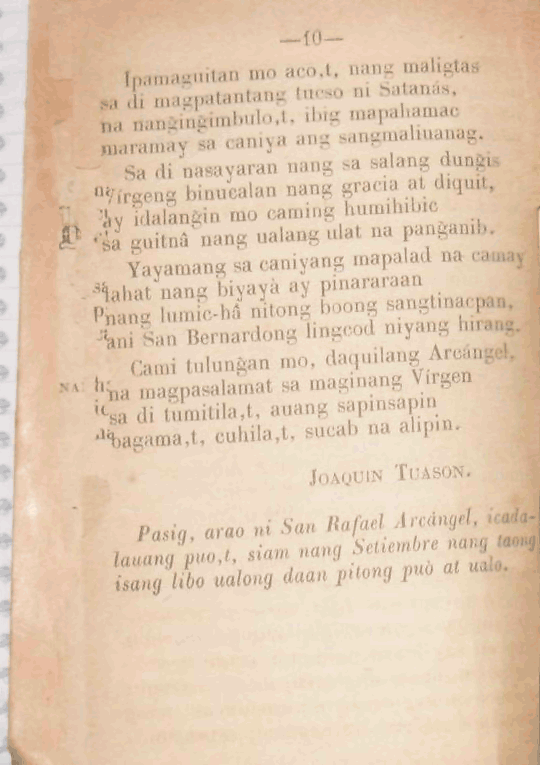 —10—
Ipamaguitan mo aco,t, nang maligtas
sa di magpatantang tucso ni Satanás,
na nang̃ing̃imbulo,t, ibig mapahamac
maramay sa caniya ang sangmaliuanag.
Sa di nasayaran nang sa salang dung̃is
Vírgeng binucalan nang gracia at diquit,
ay idalang̃in mo caming humihibic
sa guitnâ nang ualang ulat na pang̃anib.
Yayamang sa caniyang mapalad na camay
lahat nang biyayà ay pinararaan
nang lumic-hâ nitong boong sangtinacpan,
ani San Bernardong lingcod niyang hirang.
Cami tulung̃an mo, daquilang Arcángel,
NA
na magpasalamat sa maginang Vírgen
sa di tumitila,t, auang sapinsapin
bagama,t, cuhila,t, sucab na alipin.
JOAQUIN TUASON.
Pasig, arao ni San Rafael Arcángel, icada-
lauang puo,t, siam nang Setiembre nang taong
isang libo ualong daan pitong può at ualo.